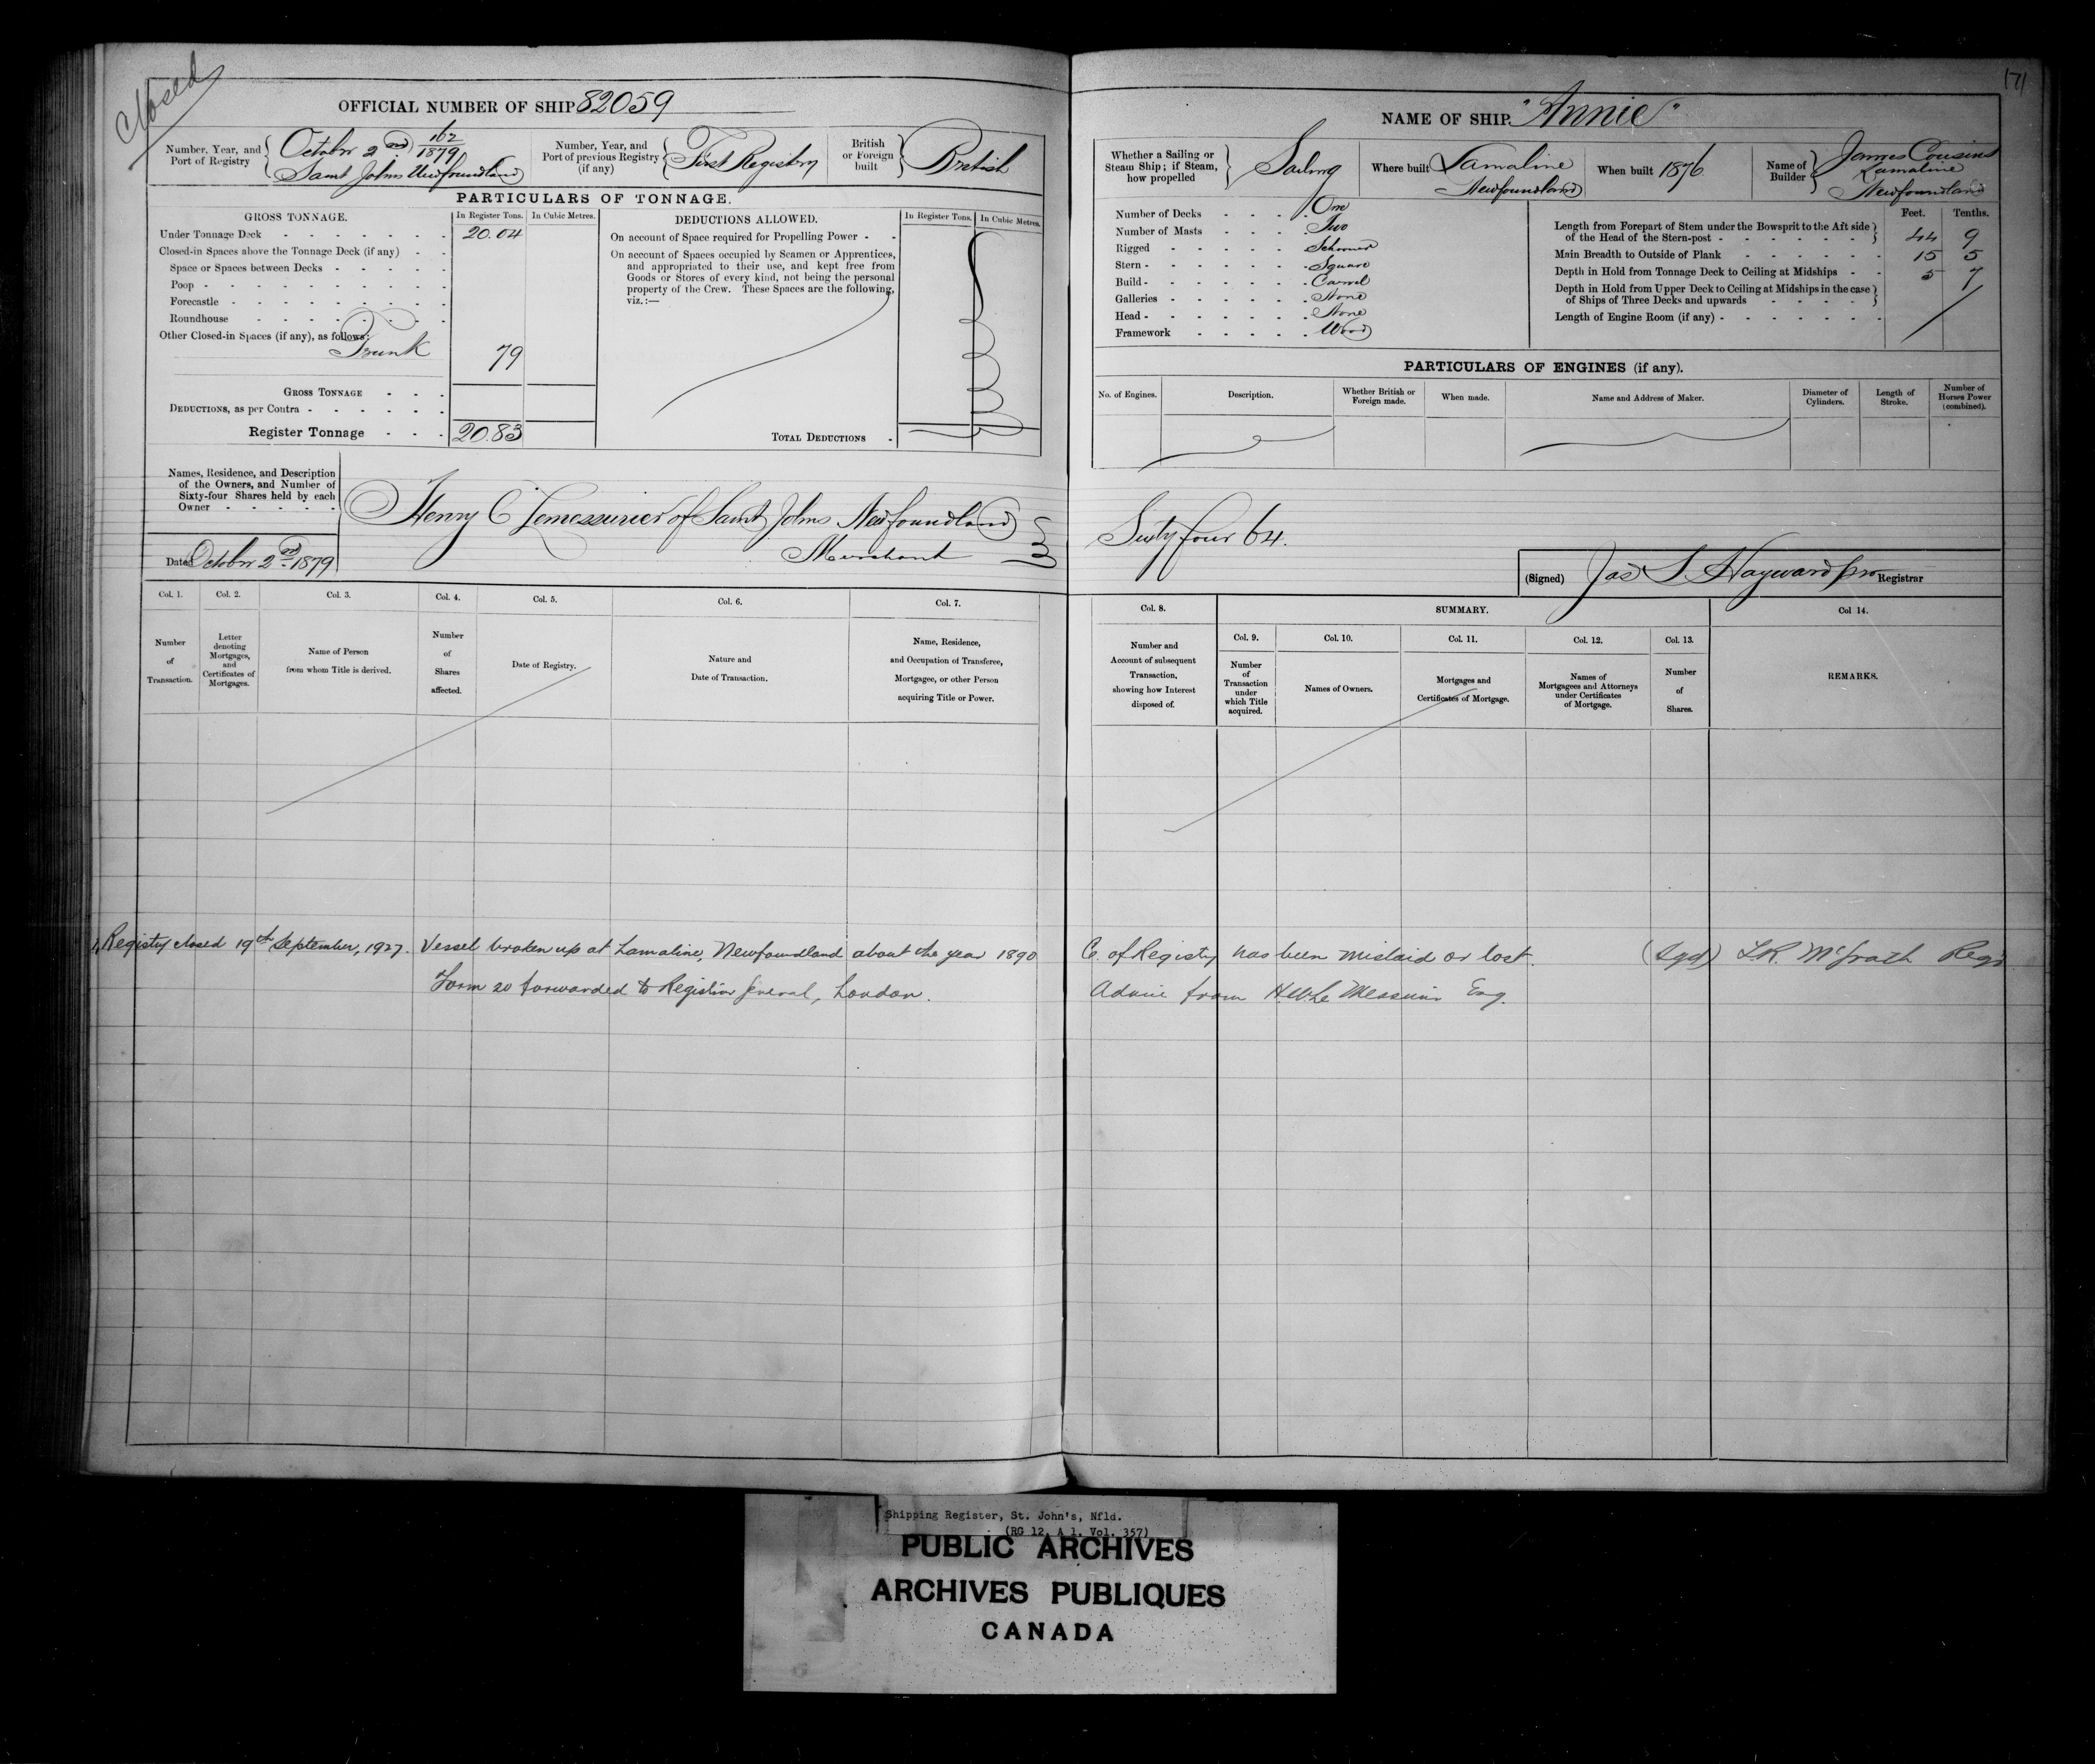 Closed
OFFICIAL NUMBER OF SHIP 82059
Number, Year, and Port of Registry
October 2nd 162/1879
Saint Johns Newfoundland
Number, Year, and Port of previous Registry (if any)
First Registry
British or Foreign built
British
PARTICULARS OF TONNAGE.
GROSS TONNAGE.
In Register Tons.
In Cubic Metres.
Under Tonnage Deck 20.04
Closed-in Spaces above the Tonnage Deck (if any)
Space or Spaces between Decks
Poop
Forecastle
Roundhouse
Other Closed-in Spaces (if any), as follows:
Trunk 79
GROSS TONNAGE
DEDUCTIONS, as per Contra
Register Tonnage 20.83
DEDUCTIONS ALLOWED.
In Register Tons.
In Cubic Metres.
On account of Space required for Propelling Power
On account of Spaces occupied by Seamen or Apprentices,
and appropriated to their use, and kept free from
Goods or Stores of every kind, not being the personal
property of the Crew. These Spaces are the following,
viz.:—
TOTAL DEDUCTIONS
Names, Residence, and Description
of the Owners, and Number of
Sixty-four Shares held by each
Owner
Henry C Lemessurier of Saint Johns Newfoundland
Merchant
Dated October 2nd 1879
Col. 1.
Number
of
Transaction.
Col. 2.
Letter
denoting
Mortgages,
and
Certificates of
Mortgages.
Col. 3.
Name of Person
from whom Title is derived.
Col. 4.
Number
of
Shares
affected.
Col. 5.
Date of Registry.
Col. 6.
Nature and
Date of Transaction.
Col. 7.
Name, Residence,
and Occupation of Transferee,
Mortgagee, or other Person
acquiring Title or Power.
Registry closed 19th September, 1927. Vessel broken up at Lamaline, Newfoundland about the year 1890
Form 20 forwarded to Registrar General, London.
171
NAME OF SHIP "Annie"
Whether a Sailing or
Steam Ship; if Steam,
how propelled
Sailing
Where built
Lamaline
Newfoundland
When built 1876
Name of Builder
James Cousins
Lamaline
Newfoundland
Number of Decks One
Number of Masts Two
Rigged Schooner
Stern Square
Build Carvel
Galleries None
Head None
Framework Wood
Feet. Tenths.
Length from Forepart of Stem under the Bowsprit to the Aft side
of the Head of the Stern-post 44 9
Main Breadth to Outside of Plank 15 5
Depth in Hold from Tonnage Deck to Ceiling at Midships 5 7
Depth in Hold from Upper Deck to Ceiling at Midships in the case
of Ships of Three Decks and upwards
Length of Engine Room (if any)
PARTICULARS OF ENGINES (if any).
No. of Engines.
Description.
Whether British or
Foreign made.
When made.
Name and Address of Maker.
Diameter of
Cylinders.
Length of
Stroke.
Number of
Horses Power
(combined).
Sixty four 64.
(Signed) Jas S Hayward Registrar
Col. 8.
Number and
Account of subsequent
Transaction,
showing how Interest
disposed of.
SUMMARY.
Col. 9.
Number
of
Transaction
under
which Title
acquired.
Col. 10.
Names of Owners.
Col. 11.
Mortgages and
Certificates of Mortgage.
Col. 12.
Names of
Mortgagees and Attorneys
under Certificates
of Mortgage.
Col. 13.
Number
of
Shares.
Col 14.
REMARKS.
C. of Registry has been mislaid or lost. (Sgd) L.R. McGrath Regr
Advice from H.W. Le Messurier Esq.
Shipping Register, St. John's, Nfld.
(RG 12, A 1, Vol. 357)
PUBLIC ARCHIVES
ARCHIVES PUBLIQUES
CANADA